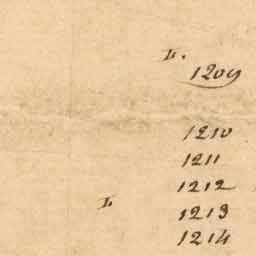 L.
1209
1210
1211
1212
L
1213
1214